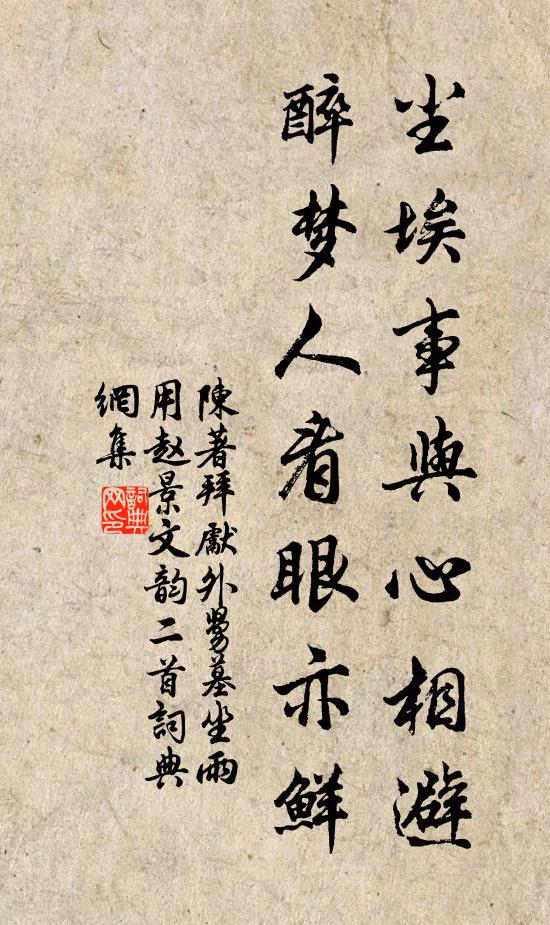 尘埃事與心相避
醉梦人看眼亦鮮
陳著拜獻外舅墓坐雨
用赵景文韵二首詞典
網集
詞典
网印